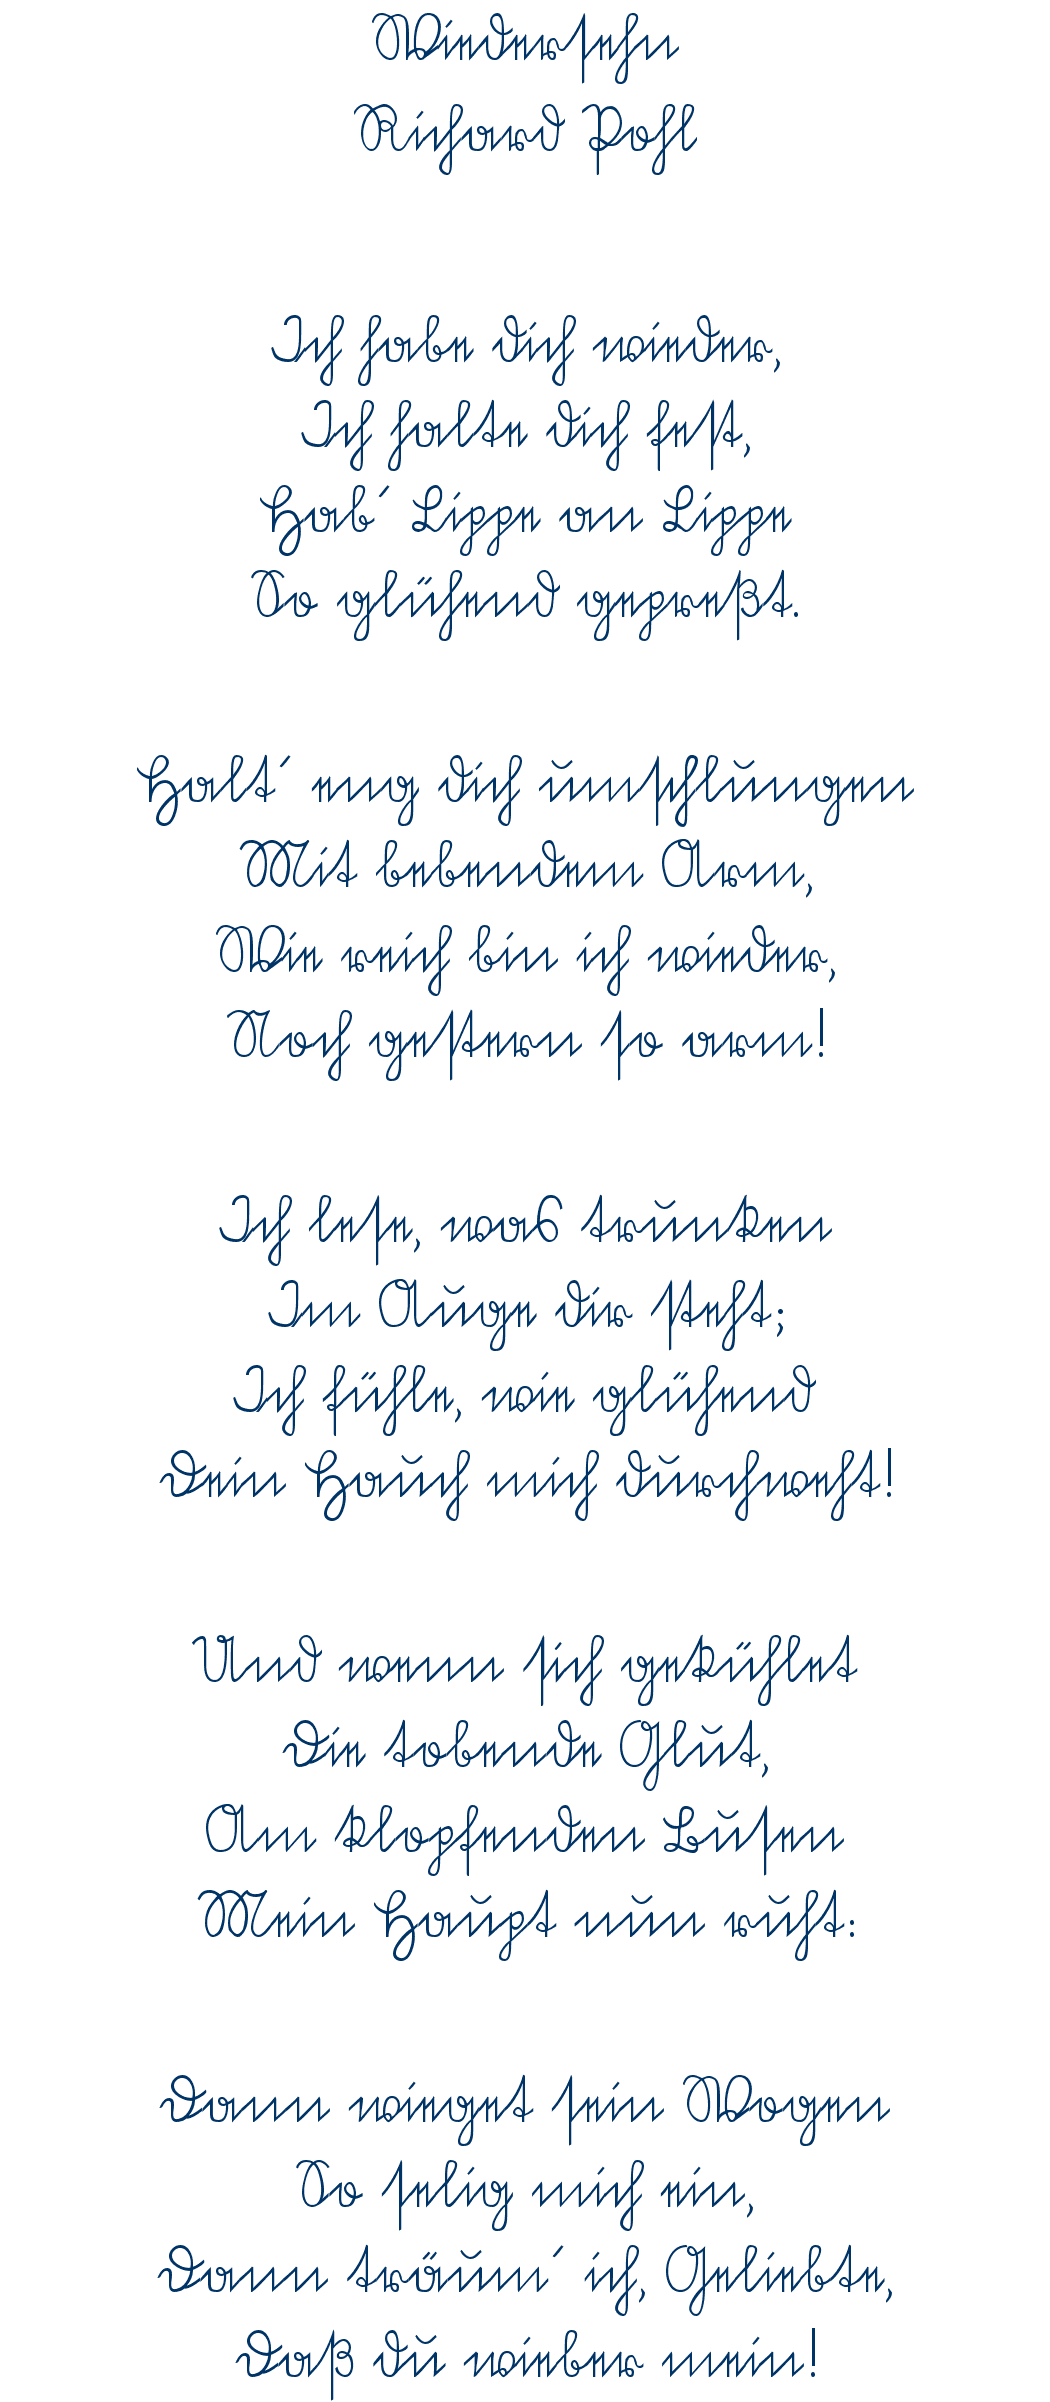 Wiedersehn
Richard Pohl
Ich habe dich wieder,
Ich halte dich fest,
Hab´ Lippe an Lippe
So glühend gepreßt.
Halt´ eng dich umschlungen
Mit bebendem Arm,
Wie reich bin ich wieder,
Noch gestern so arm!
Ich lese, was trunken
Im Auge dir steht;
Ich fühle, wie glühend
Dein Hauch mich durchweht!
Und wenn sich gekühlet
Die tobende Glut,
Am klopfenden Busen
Mein Haupt nun ruht:
Dann wieget sein Wogen
So selig mich ein,
Dann träum´ ich, Geliebte,
Daß du wieber mein!